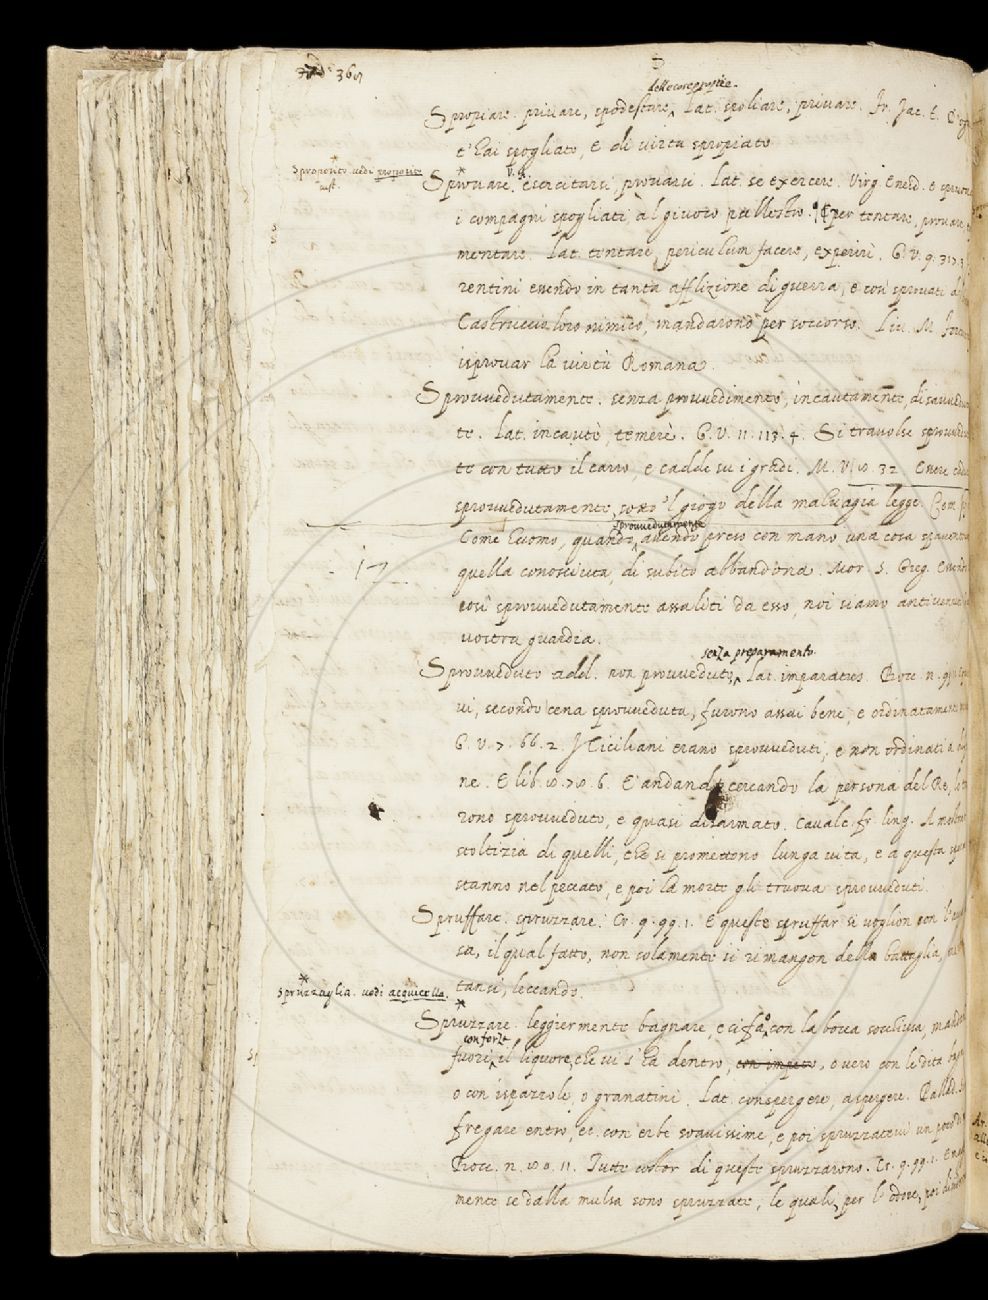 delle cose proprie.
Spropiare. privare, spodestare, Lat. spoliare, privare. Fr. Jac. t.
t'hai spogliato, e di virtù spropiato
sproposito. vedi proposito
sust.
Sprovare. esercitarsi, provarsi. Lat. se exercere. Virg. Eneid. e
i compagni spogliati al giuoco pallestro. per tentare, provare,
mentare. Lat. tentare, periculum facere, experiri. G. V. 9. 317. 3.
rentini essendo in tanta afflizione di guerra, e così sprovati di
Castruccio loro nimico, mandarono per soccorso. Liv. M.
isprovar la virtù Romana.
Sprovvedutamente. senza provvedimento, incautamente,
te. Lat. incautè, temerè. G. V. 11. 113. 4. Si travolse
te con tutto il carro, e cadde su i gradi. M. V. 10. 32. Enere
sprovvedutamente, sotto 'l giogo della malvagia legge.
sprovvedutamente
Come huomo, quando, avendo preso con mano una cosa
17
quella conosciuta, di subito abbandona. Mor. S. Greg.
così sprovvedutamente assaliti da esso, noi siamo
nostra guardia.
senza preparamento.
Sprovveduto add. non provveduto, Lat. imparatus. Bocc. n.
vi, secondo cena sprovveduta, furono assai bene, e ordinatamente
G. V. 7. 66. 2. I Ciciliani erano sprovveduti, e non ordinati a
ne. E lib. 10. 70. 6. E andando cercando la persona del Re,
rono sprovveduto, e quasi disarmato. Cavalc. fr. ling.
stoltizia di quelli, che si promettono lunga vita, e a questa
stanno nel peccato, e poi la morte gli truova sprovveduti.
Spruffare. spruzzare. Cr. 9. 99. 1. E queste spruffar si voglion con
sa, il qual fatto, non solamente si rimangon della battaglia,
tansi, leccando.
spruzzaglia. vedi acquicella.
Spruzzare. leggiermente bagnare, e ci fa con la bocca socchiusa,
con forza
fuori, il liquore, che vi s'ha dentro, con impeto, o vero con le dita
o con ispazzole, o granatini. Lat. conspergere, aspergere. Pallad.
fregare entro, ec. con erbe soavissime, e poi spruzzatevi un poco
Bocc. n. 100. 11. Tutte costor di queste spruzzarono. Cr. 9. 99. 1.
mente se dalla mulsa sono spruzzate, le quali, per l'odore, poi